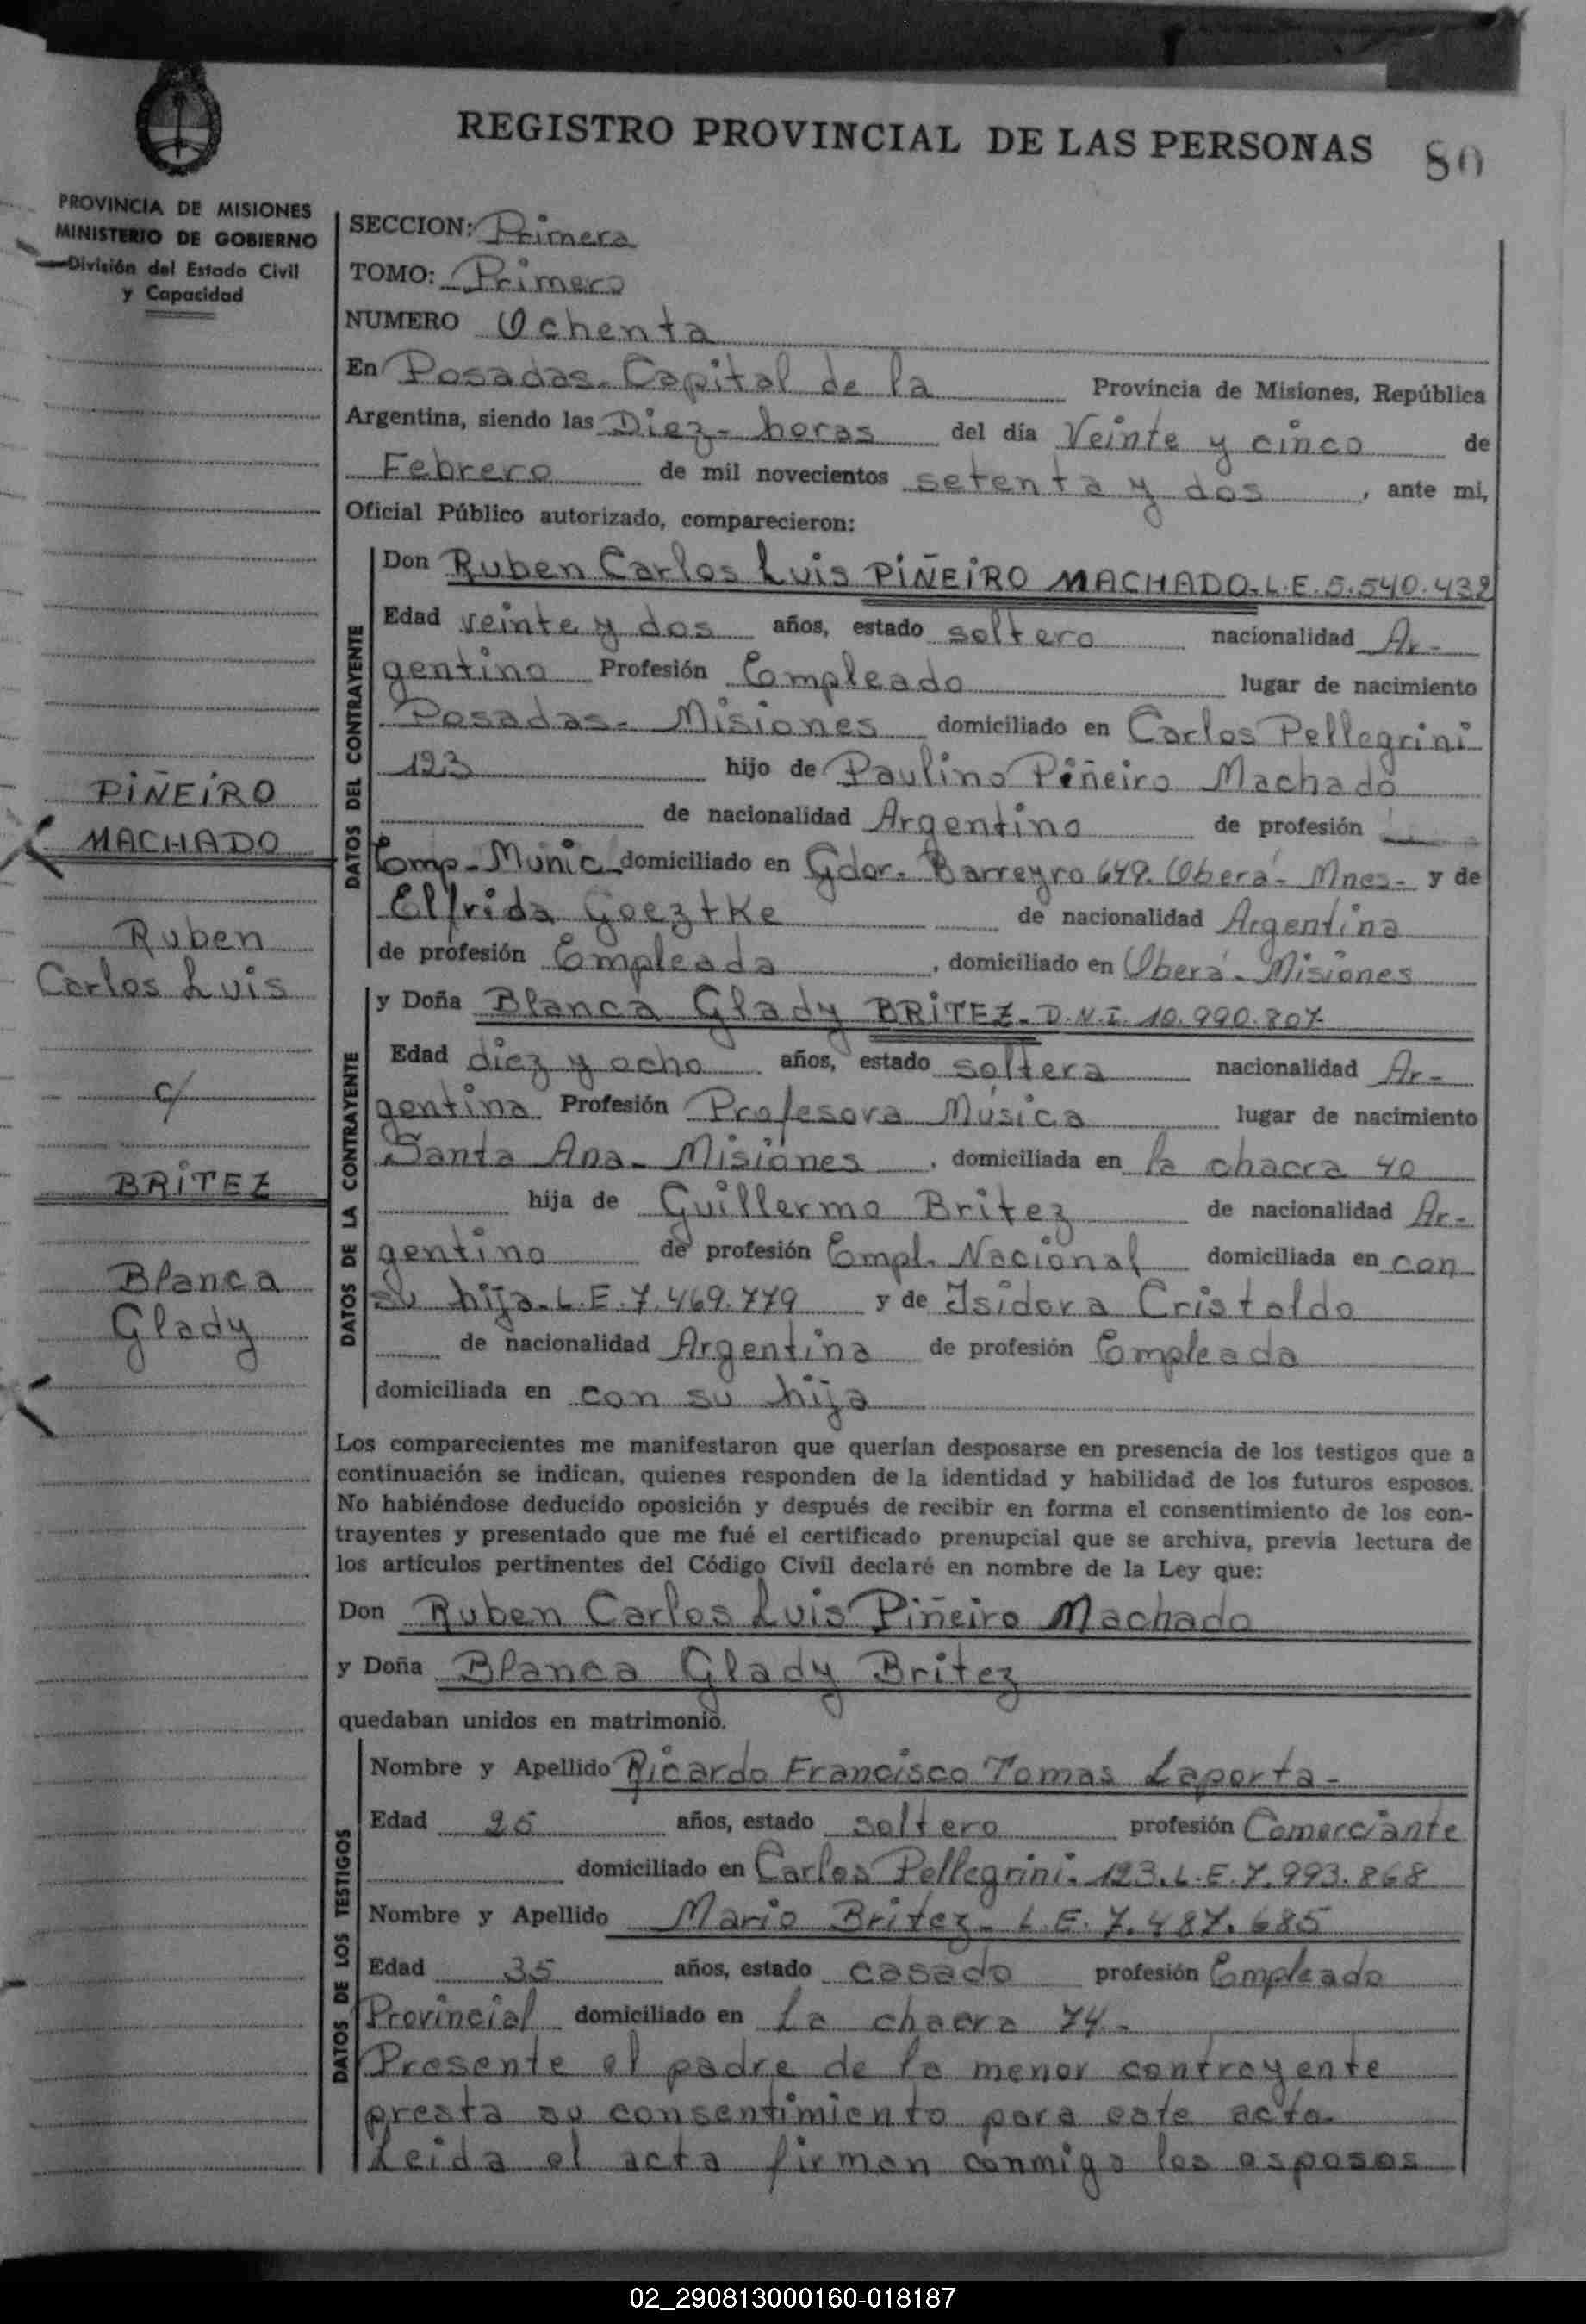 REGISTRO PROVINCIAL DE LAS PERSONAS 80
PROVINCIA DE MISIONES
MINISTERIO DE GOBIERNO
División del Estado Civil
y Capacidad
PIÑEIRO
MACHADO
Ruben
Carlos Luis
c/
BRITEZ
Blanca
Glady
SECCION: Primera
TOMO: Primero
NUMERO Ochenta
En Posadas. Capital de la Provincia de Misiones, República
Argentina, siendo las Diez- horas del día Veinte y cinco de
Febrero de mil novecientos setenta y dos, ante mi,
Oficial Público autorizado, comparecieron:
DATOS DEL CONTRAYENTE
Don Ruben Carlos Luis PIÑEIRO MACHADO. L.E. 5.540.432
Edad veinte y dos años, estado soltero nacionalidad Ar-
gentino Profesión Empleado lugar de nacimiento
Posadas- Misiones domiciliado en Carlos Pellegrini
123 hijo de Paulino Piñeiro Machado
de nacionalidad Argentino de profesión
Emp- Munic domiciliado en Gdor. Barreyro 649. Oberá- Mnes- y de
Elfrida Goeztke de nacionalidad Argentina
de profesión Empleada, domiciliado en Oberá- Misiones
DATOS DE LA CONTRAYENTE
y Doña Blanca Glady BRITEZ- D.N.I. 10.990.807
Edad diez y ocho años, estado soltera nacionalidad Ar-
gentina Profesión Profesora Música lugar de nacimiento
Santa Ana- Misiones, domiciliada en la chacra 40
hija de Guillermo Britez de nacionalidad Ar-
gentino de profesión Empl. Nacional domiciliada en con
su hija. L.E. 7.469.779 y de Isidora Cristaldo
de nacionalidad Argentina de profesión Empleada
domiciliada en con su hija
Los comparecientes me manifestaron que querían desposarse en presencia de los testigos que a
continuación se indican, quienes responden de la identidad y habilidad de los futuros esposos.
No habiéndose deducido oposición y después de recibir en forma el consentimiento de los con-
trayentes y presentado que me fué el certificado prenupcial que se archiva, previa lectura de
los artículos pertinentes del Código Civil declaré en nombre de la Ley que:
Don Ruben Carlos Luis Piñeiro Machado
y Doña Blanca Glady Britez
quedaban unidos en matrimonio.
DATOS DE LOS TESTIGOS
Nombre y Apellido Ricardo Francisco Tomas Laporta-
Edad 25 años, estado soltero profesión Comerciante
domiciliado en Carlos Pellegrini. 123. L.E. 7.993.868
Nombre y Apellido Mario Britez- L.E. 7.487.685
Edad 35 años, estado casado profesión Empleado
Provincial domiciliado en La chacra 74-
Presente el padre de la menor contrayente
presta su consentimiento para este acto.
Leida el acta firman conmigo los esposos
02_290813000160-018187